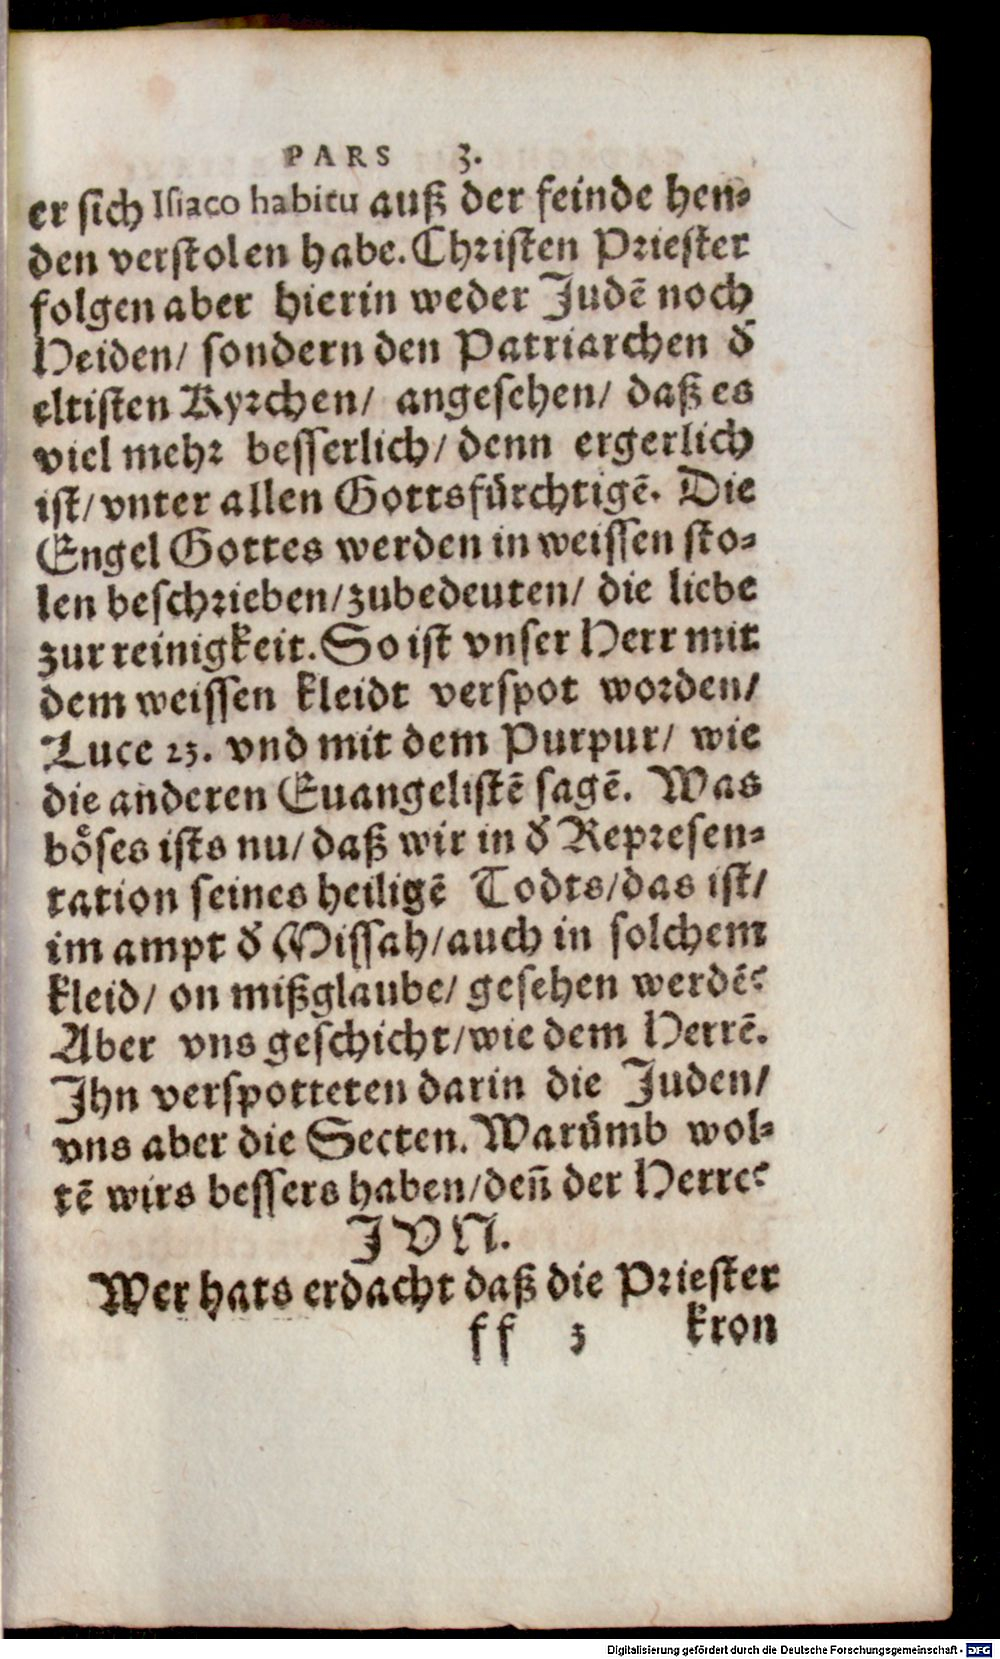 PARS 3.
er sich Isiaco habitu auß der feinde hen⸗
den verstolen habe. Christen Priester
folgen aber hierin weder Judē noch
Heiden/ sondern den Patriarchen đ
eltisten Kyrchen/ angesehen/ daß es
viel mehr besserlich/ denn ergerlich
ist/ vnter allen Gottsfürchtigē. Die
Engel Gottes werden in weissen sto⸗
len beschrieben/ zubedeuten/ die liebe
zur reinigkeit. So ist vnser Herr mit
dem weissen kleidt verspot worden/
Luce 23. vnd mit dem Purpur/ wie
die anderen Euangelistē sagē. Was
böses ists nu/ daß wir in đ Represen⸗
tation seines heiligē Todts/ das ist/
im ampt đ Missah/ auch in solchem
kleid/ on mißglaube/ gesehen werdē?
Aber vns geschicht/ wie dem Herrē.
Ihn verspotteten darin die Juden/
vns aber die Secten. Warümb wol⸗
tē wirs bessers haben/ deñ der Herre?
JVN.
Wer hats erdacht daß die Priester
ff 3 kron
Digitalisierung gefördert durch die Deutsche Forschungsgemeinschaft - DFG